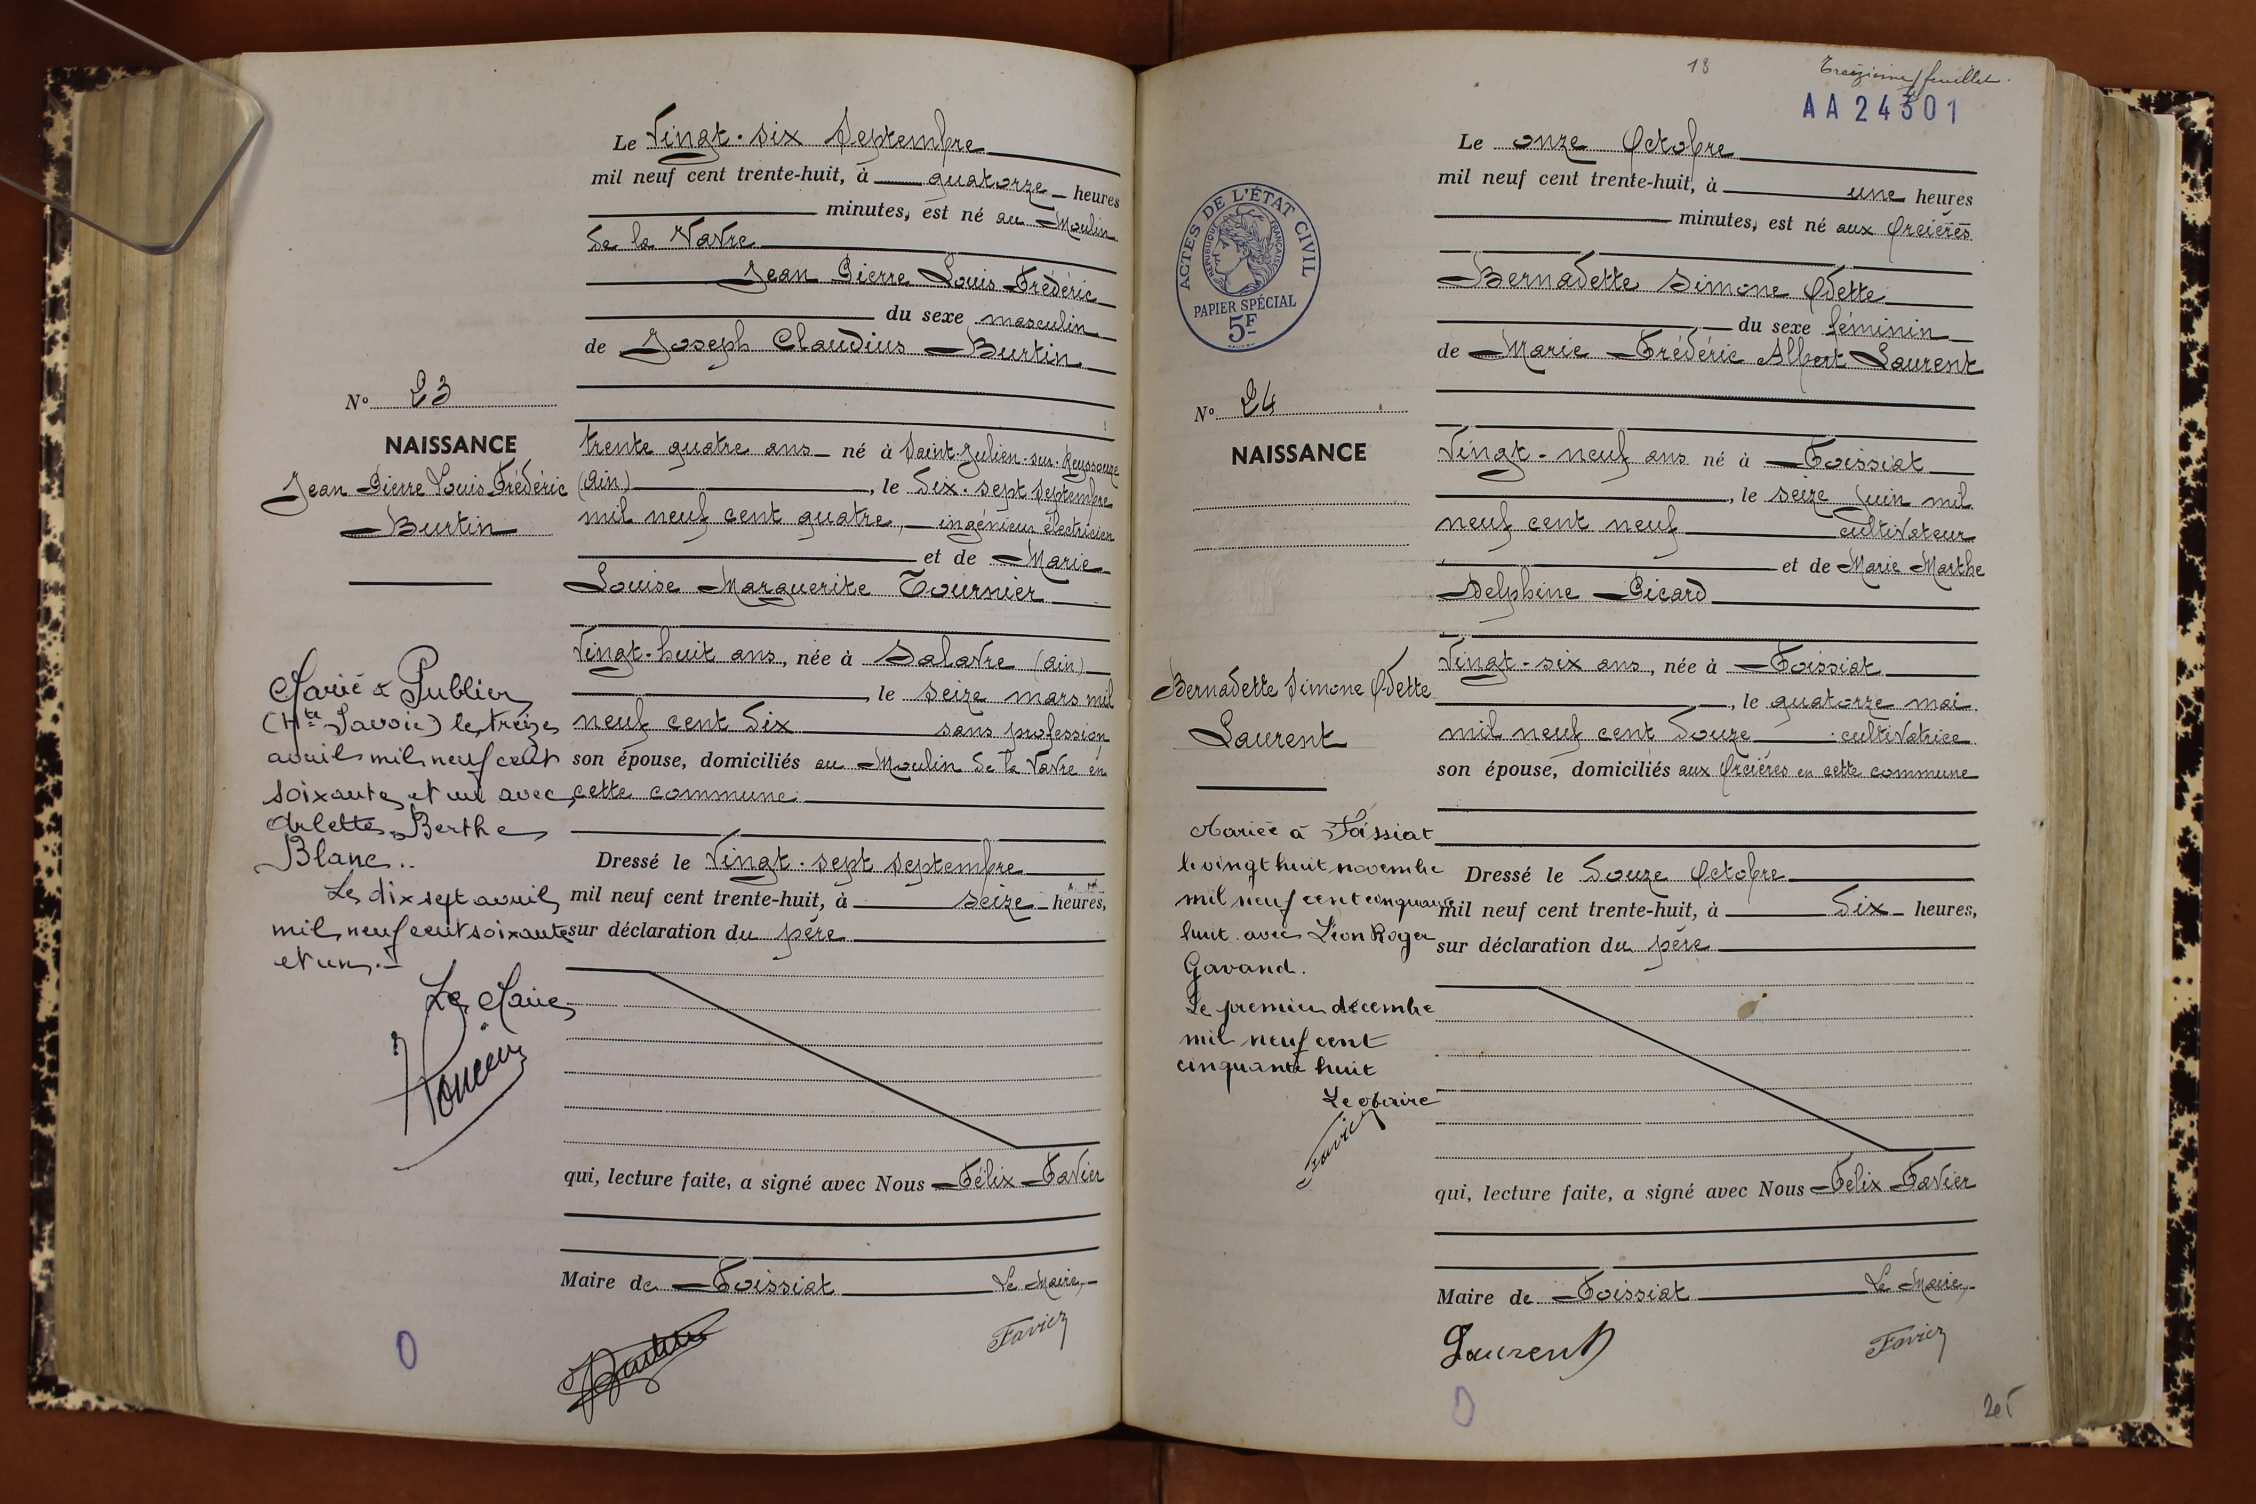 Le Vingt-six Septembre
mil neuf cent trente-huit, à quatorze heures
minutes, est né au Moulin
de la Vavre
Jean Pierre Louis Frédéric
du sexe masculin
de Joseph Claudius Burtin
N° 23
NAISSANCE
Jean Pierre Louis Frédéric
Burtin
trente quatre ans né à Saint-Julien-sur-Reyssouze
(Ain), le dix-sept septembre
mil neuf cent quatre, ingénieur électricien
et de Marie
Louise Marguerite Tournier
Vingt-huit ans, née à Salavre (Ain)
le seize mars mil
neuf cent dix sans profession
son épouse, domiciliés au Moulin de la Vavre en
cette commune
Dressé le Vingt-sept septembre
mil neuf cent trente-huit, à seize heures,
sur déclaration du père
qui, lecture faite, a signé avec Nous Félix Favier
Maire de Foissiat Le Maire,
Burtin Favier
Marié à Publier
(Hte Savoie) le treize
avril mil neuf cent
soixante et un avec
Arlette Berthe
Blanc..
Le dix sept avril
mil neuf cent soixante
et un.-
Le Maire
13 Treizième feuillet.
AA24301
Le onze Octobre
mil neuf cent trente-huit, à une heures
minutes, est né aux Orcières
Bernadette Simone Odette
du sexe féminin
de Marie Frédéric Albert Laurent
ACTES DE L'ÉTAT CIVIL
RÉPUBLIQUE FRANÇAISE
PAPIER SPÉCIAL
5F
N° 24
NAISSANCE
Vingt-neuf ans né à Foissiat
, le seize Juin mil
neuf cent neuf cultivateur
et de Marie Marthe
Delphine Picard
Vingt-six ans, née à Foissiat
, le quatorze mai
mil neuf cent douze cultivatrice
son épouse, domiciliés aux Orcières en cette commune
Dressé le douze Octobre
mil neuf cent trente-huit, à dix heures,
sur déclaration du père
qui, lecture faite, a signé avec Nous Félix Favier
Maire de Foissiat Le Maire,
Laurent Favier
Bernadette Simone Odette
Laurent
Mariée à Foissiat
le vingt huit novembre
mil neuf cent cinquante
huit avec Léon Roger
Gavand.
Le premier décembre
mil neuf cent
cinquante huit
Le Maire
Favier